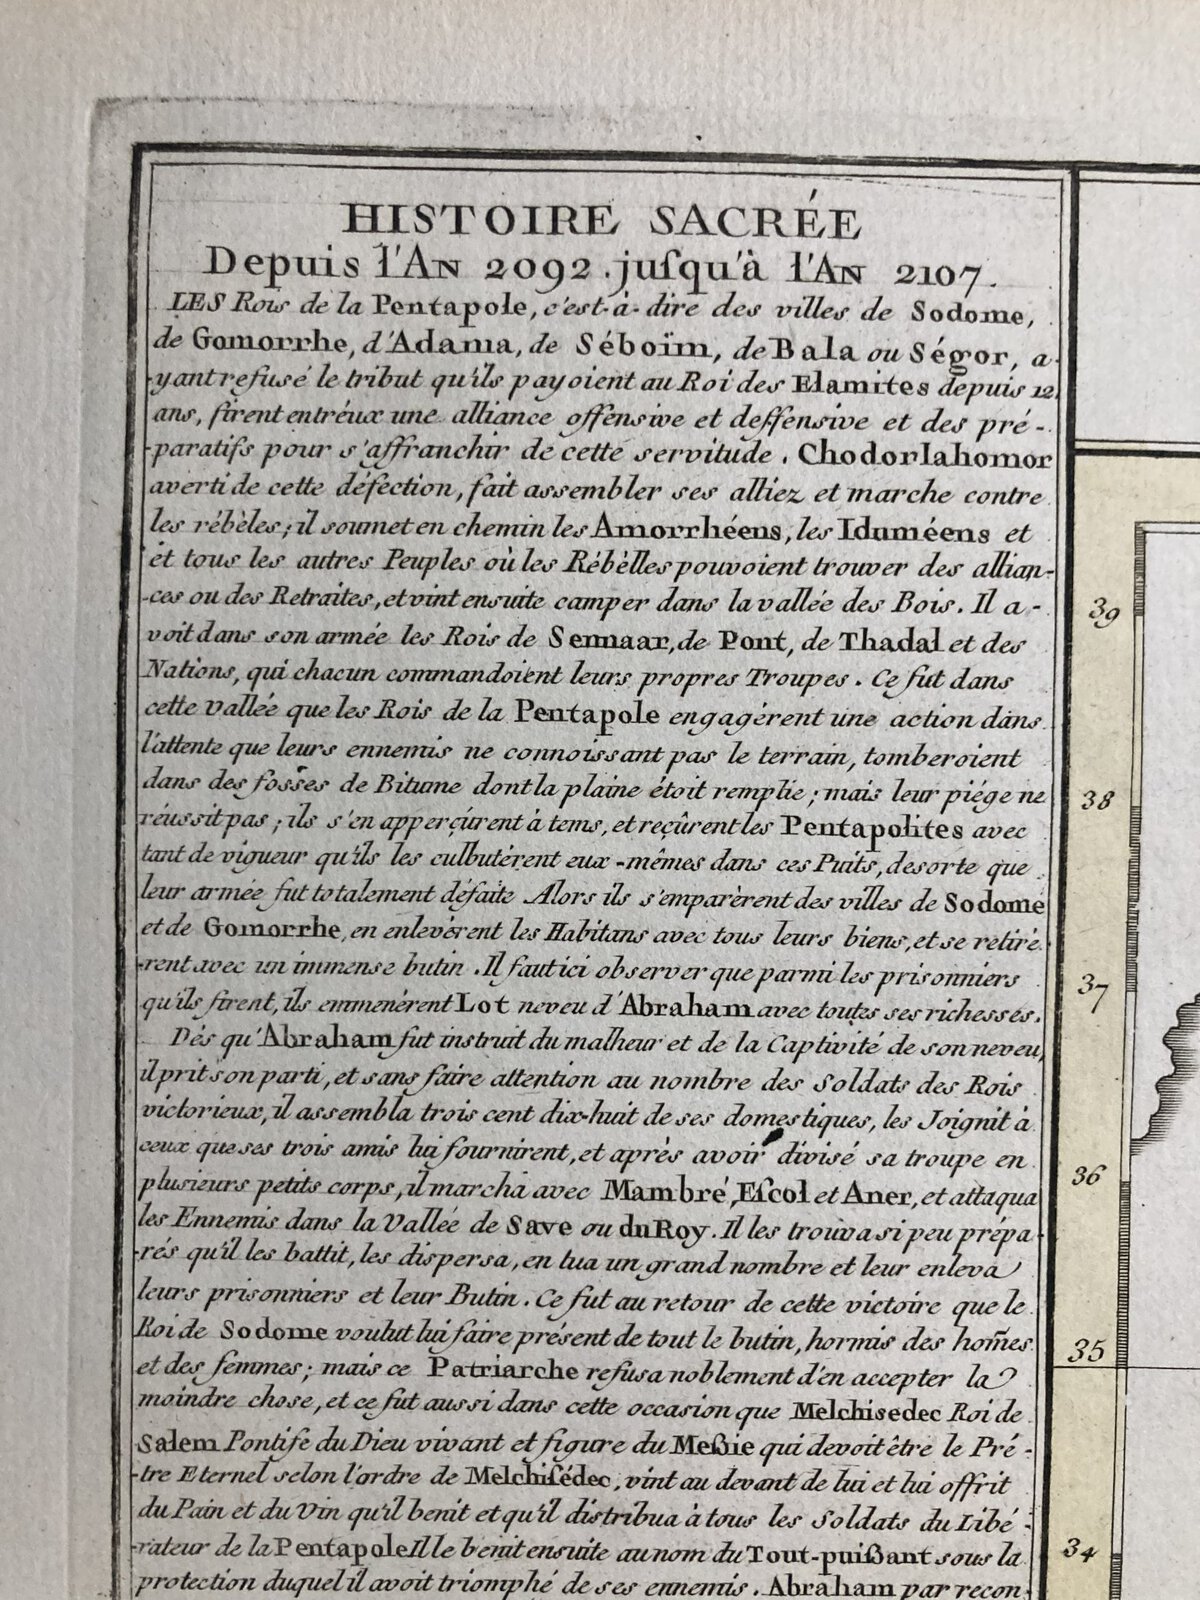 HISTOIRE SACRÉE
Depuis l'AN 2092. juſqu'à l'AN 2107.
LES Rois de la Pentapole, c'est-à-dire des villes de Sodome,
de Gomorrhe, d'Adama, de Séboïm, de Bala ou Ségor, a-
-yant refusé le tribut qu'ils payoient au Roi des Elamites depuis 12
ans, firent entréux une alliance offensive et deffensive et des pré-
-paratifs pour s'affranchir de cette servitude. Chodorlahomor
averti de cette défection, fait assembler ses alliez et marche contre
les rébèles; il soumet en chemin les Amorrhéens, les Iduméens et
et tous les autres Peuples où les Rébèlles pouvoient trouver des allian-
-ces ou des Retraites, et vint ensuite camper dans la vallée des Bois. Il a-
voit dans son armée les Rois de Sennaar, de Pont, de Thadal et des
Nations, qui chacun commandoient leurs propres Troupes. Ce fut dans
cette vallée que les Rois de la Pentapole engagérent une action dans
l'attente que leurs ennemis ne connoissant pas le terrain, tomberoient
dans des fosses de Bitume dont la plaine étoit remplie; mais leur piége ne
réussit pas; ils s'en apperçûrent à tems, et reçûrent les Pentapolites avec
tant de vigueur qu'ils les culbutérent eux-mêmes dans ces Puits, desorte que
leur armée fut totalement défaite Alors ils s'emparèrent des villes de Sodome
et de Gomorrhe, en enlevèrent les Habitans avec tous leurs biens, et se retiré-
-rent avec un immense butin. Il faut ici observer que parmi les prisonniers
qu'ils firent, ils emmenérent Lot neveu d'Abraham avec toutes ses richesses.
Dès qu'Abraham fut instruit du malheur et de la Captivité de son neveu,
il prit son parti, et sans faire attention au nombre des Soldats des Rois
victorieux, il assembla trois cent dix-huit de ses domestiques, les Joignit à
ceux que ses trois amis lui fournirent, et après avoir divisé sa troupe en
plusieurs petits corps, il marcha avec Mambré, Eſcol et Aner, et attaqua
les Ennemis dans la Vallée de Save ou du Roy. Il les trouva si peu prépa-
-rés qu'il les battit, les dispersa, en tua un grand nombre et leur enleva
leurs prisonniers et leur Butin. Ce fut au retour de cette victoire que le
Roi de Sodome voulut lui faire présent de tout le butin, hormis des hom̃es
et des femmes; mais ce Patriarche refusa noblement d'en accepter la
moindre chose, et ce fut aussi dans cette occasion que Melchisedec Roi de
Salem Pontife du Dieu vivant et figure du Meßie qui devoit être le Pré-
-tre Eternel selon l'ordre de Melchiſédec, vint au devant de lui et lui offrit
du Pain et du Vin qu'il benit et qu'il distribua à tous les Soldats du Libé-
-rateur de la Pentapole Il le benit ensuite au nom du Tout-puißant sous la
protection duquel il avoit triomphé de ses ennemis. Abraham par recon-
39
38
37
36
35
34